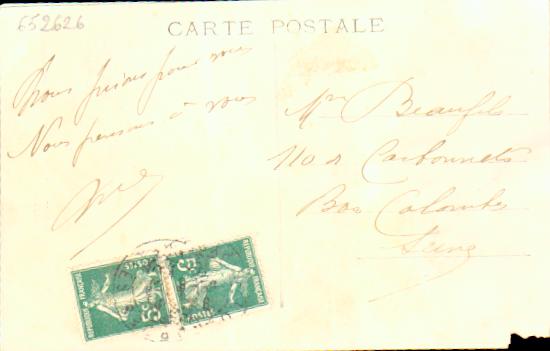 652626
CARTE POSTALE
Nous prions pour vous
Nous pensons à vous
Mr Beaufils
110 r Carbonnets
Bois Colombes
Seine
REPUBLIQUE FRANÇAISE
5c
POSTES
REPUBLIQUE FRANÇAISE
5c
POSTES